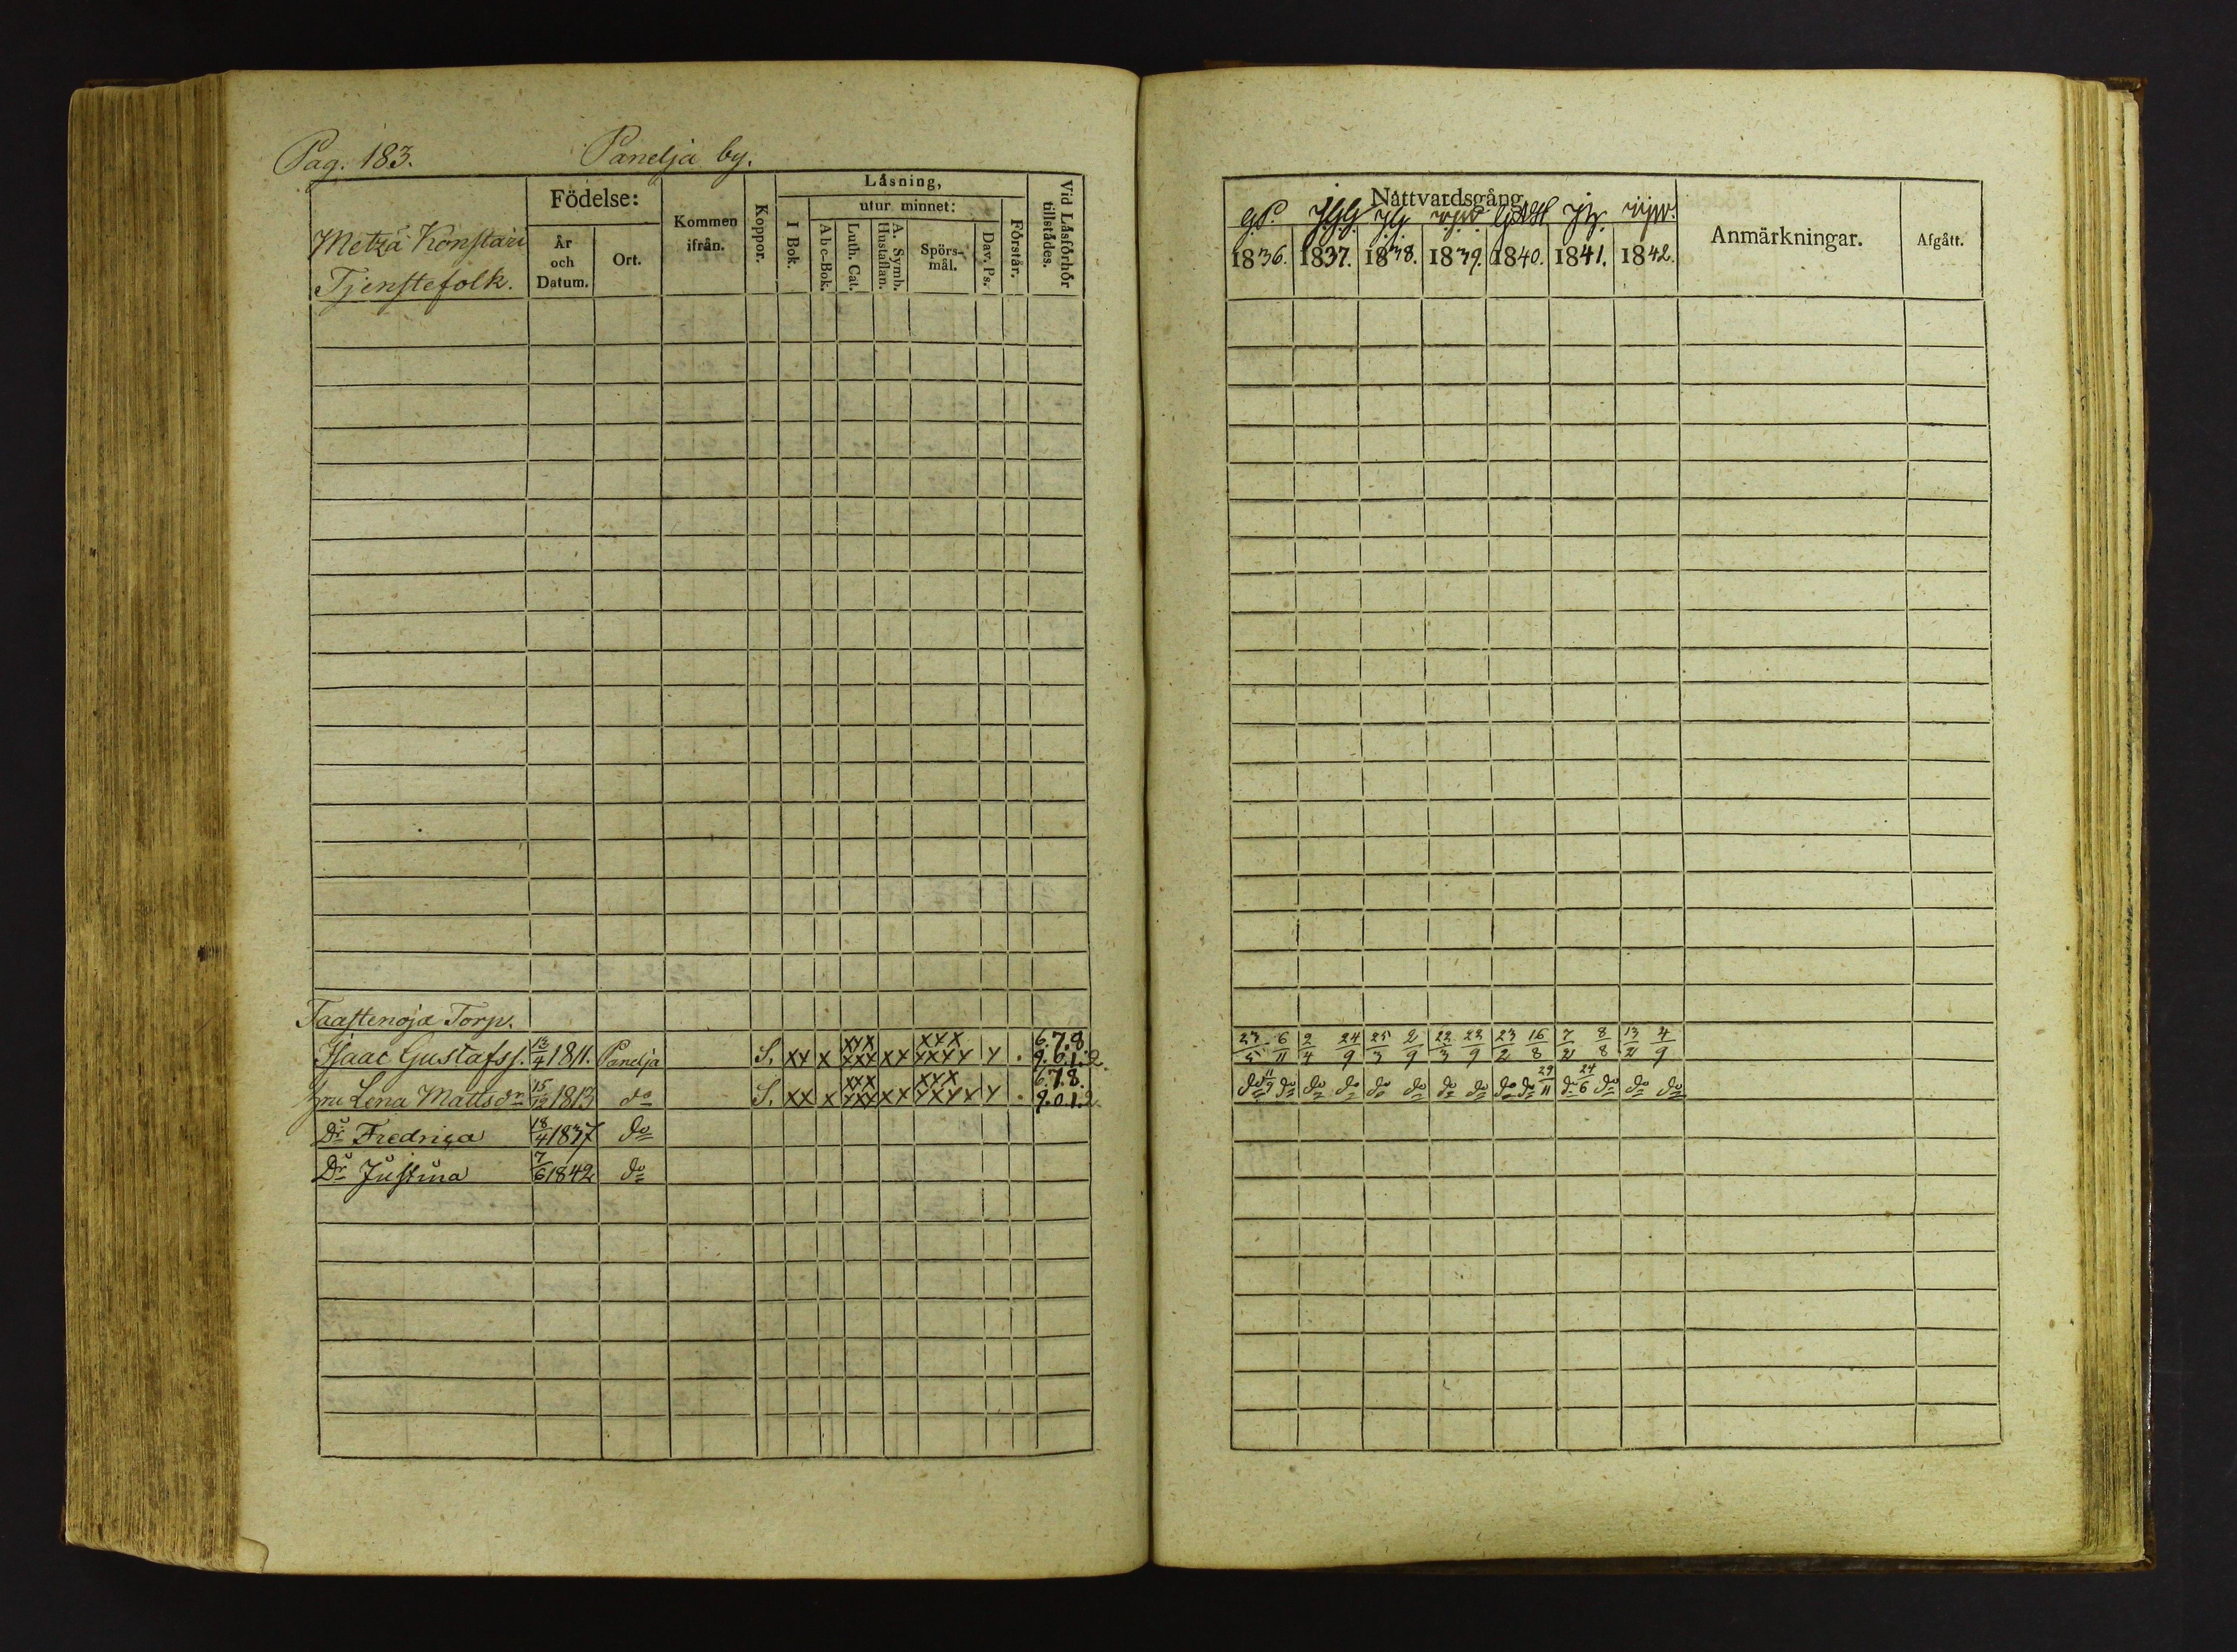 Pag. 183. Panelja by.
Metzä Konstari
Tjenstefolk.
Födelse:
År och Datum.
Ort.
Kommen ifrån.
Koppor.
Läsning,
I Bok.
utur minnet:
Abc-Bok.
Luth. Cat.
A. Symb. Hustaflan.
Spörsmål.
Dav. Ps.
Förstår.
Vid Läsförhör tillstädes.
Taastenoja Torp.
Isaac Gustafss. 13/4 1811. Panelja S. xx x xxx xxx xx xxx xxxx x . 6.7.8. 9.0.1.2.
hru Lena Mattsdr 15/12 1813 do S. xx x xxx xxx xx xxx xxxx x . 6.7.8. 9.0.1.2.
Dr Fredrica 18/4 1837 do
Dr Justina 7/6 1842 do
Nattvardsgång
1836. 1837. 1838. 1839. 1840. 1841. 1842.
Anmärkningar.
Afgått.
23/5 6/11 2/4 24/9 25/3 2/9 22/3 22/9 23/2 16/8 7/2 8/8 13/2 4/9
do 11/9 do do do do do do do do do 29/11 do 24/6 do do do